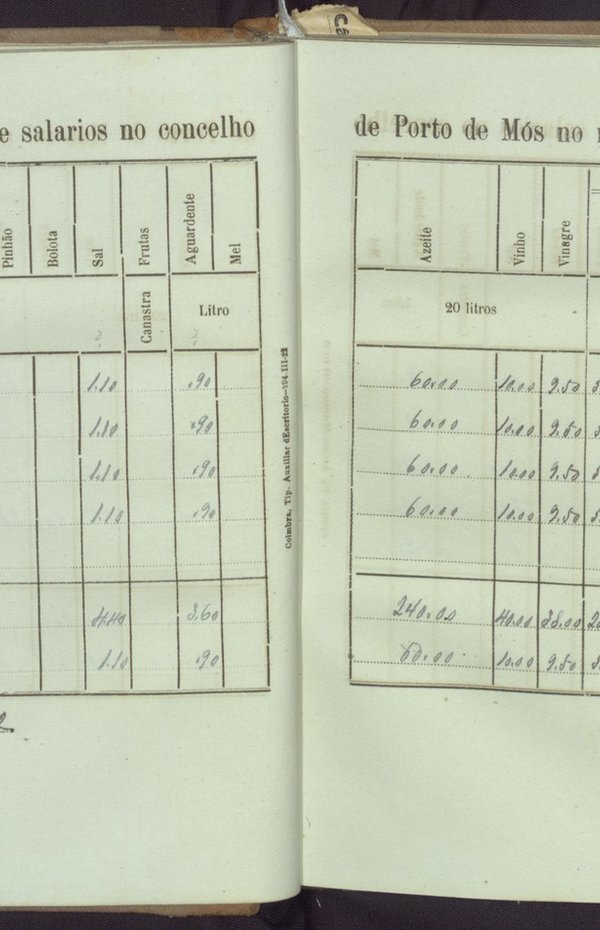 e salarios no concelho
Pinhão Bolota Sal Frutas Aguardente Mel
Canastra Litro
1.10 .90
1.10 .90
1.10 .90
1.10 .90
4.40 3.60
1.10 .90
Coimbra, Tip. Auxiliar d'Escritorio
de Porto de Mós no
Azeite Vinho Vinagre
20 litros
60.00 10.00 9.50
60.00 10.00 9.50
60.00 10.00 9.50
60.00 10.00 9.50
240.00 40.00 38.00
60.00 10.00 9.50